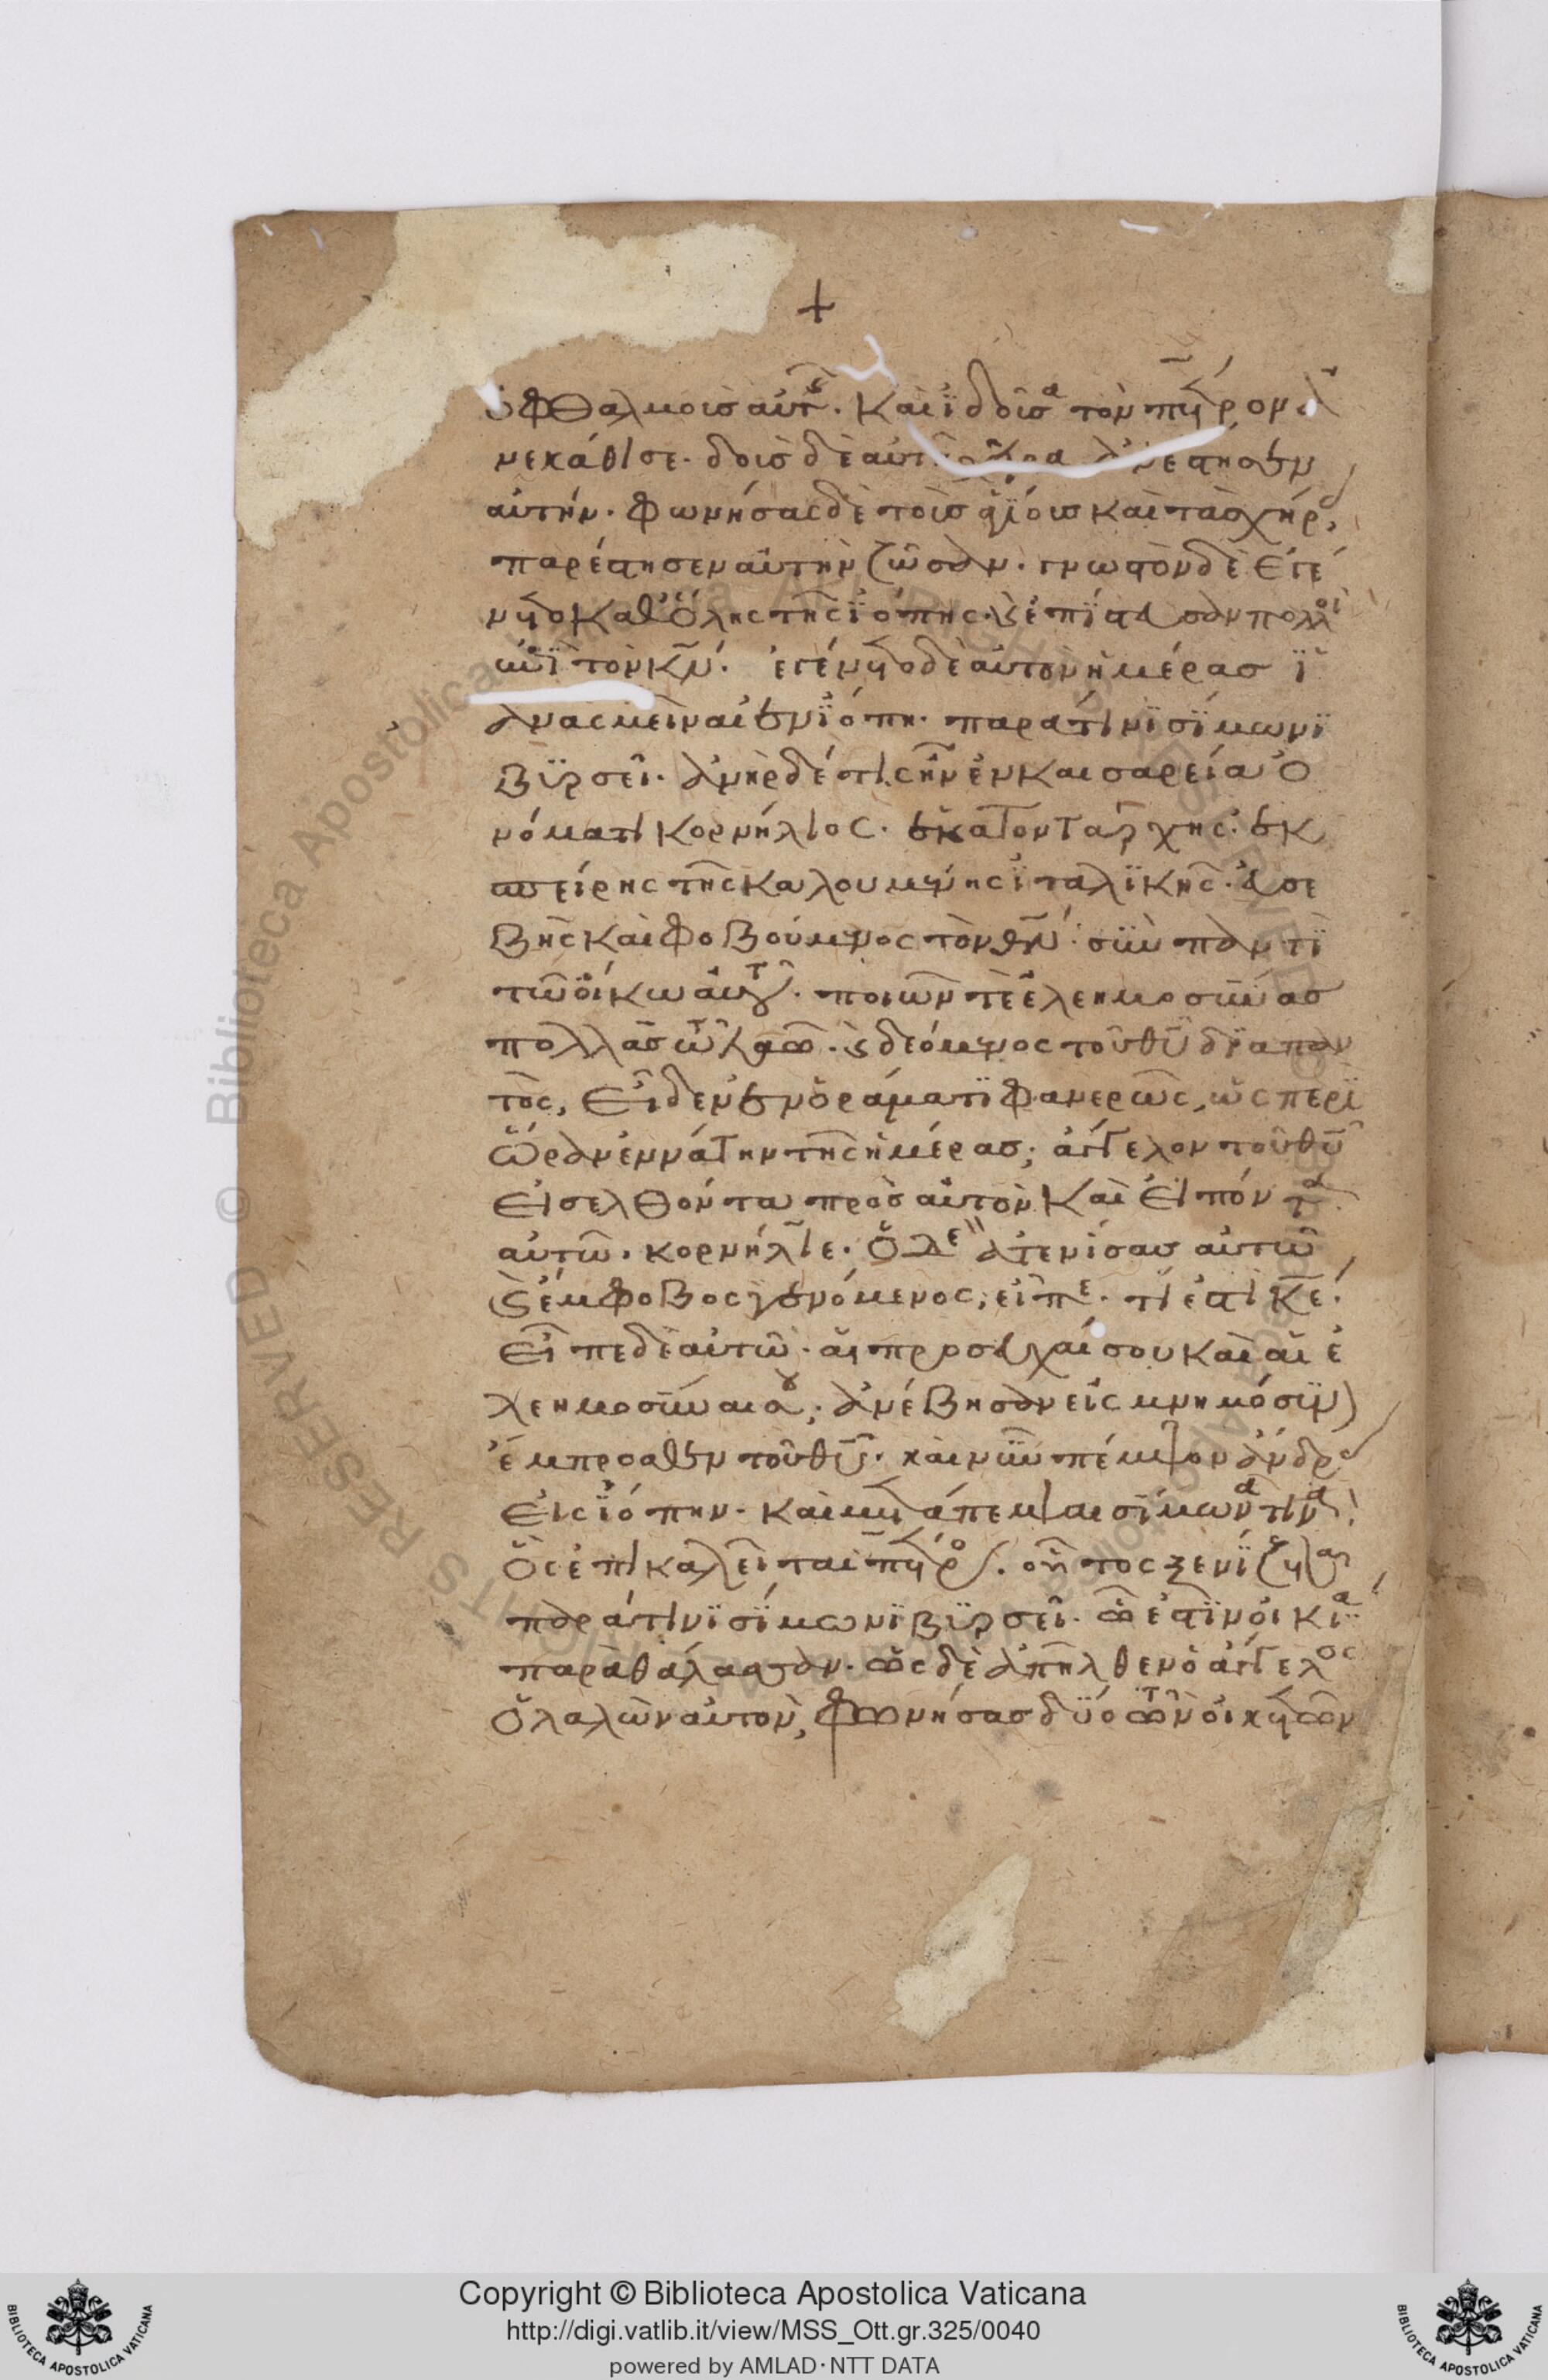 +
ὀφθαλμοὺς αὐτ. καὶ ἰδοῦσα τὸν πέτρον ἀ
νεκάθισε. δοὺς δὲ αὐτ χεῖρα ἀνέστησεν
αὐτήν. φωνήσας δὲ τοὺς ἁγίους καὶ τὰς χήρ,
παρέστησεν αὐτὴν ζῶσαν. γνωστὸν δὲ ἐγέ
νετο καθ' ὅλης τῆς ἰόπης. καὶ ἐπίστευσαν πολλοὶ
ἐπὶ τὸν κν. ἐγένετο δὲ αὐτὸν ἡμέρας ἱ
ανας μεῖναι ἐν ἰόπη. παρά τινι σίμωνι
βυρσεῖ. ἀνὴρ δέ τις ἦν ἐν καισαρεία ὀ
νόματι κορνήλιος. ἑκατοντάρχης. ἐκ
σπείρης τῆς καλουμένης ἰταλικῆς. εὐσε
βὴς καὶ φοβούμενος τὸν θν. σὺν παντὶ
τῶ οἴκω αὐτοῦ. ποιῶν τὲ ἐλεημοσύνας
πολλὰς τῶ λαῶ. καὶ δεόμενος τοῦ θυ διαπαν
τὸς, εἶδεν ἐν ὁράματι φανερῶς, ὡς περὶ
ὥραν ἐννάτην τῆς ἡμέρας, ἄγγελον τοῦ θυ
εἰσελθόντα πρὸς αὐτὸν καὶ εἰπόντα
αὐτῶ. κορνήλιε. ὁ δὲ ἀτενίσας αὐτῶ
καὶ ἔμφοβος γενόμενος, εἶπε. τί ἐστι κε.
εἶπε δὲ αὐτῶ. αἱ προσευχαί σου καὶ αἱ ἐ
λεημοσύναι σου, ἀνέβησαν εἰς μνημόσυν
ἔμπροσθεν τοῦ θυ. καὶ νῦν πέμψον ἄνδρας
εἰς ἰόπην. καὶ μετάπεμψαι σίμωνά τινα,
ὃς ἐπικαλεῖται πέτρος. οὗτος ξενίζεται
παρά τινι σίμωνι βυρσεῖ. ὧ ἐστὶν οἰκία
παρὰ θάλασσαν. ὡς δὲ ἀπῆλθεν ὁ ἄγγελος
ὁ λαλῶν αὐτὸν, φωνήσας δύο τῶν οἰκετῶν
Copyright © Biblioteca Apostolica Vaticana
http://digi.vatlib.it/view/MSS_Ott.gr.325/0040
powered by AMLAD·NTT DATA